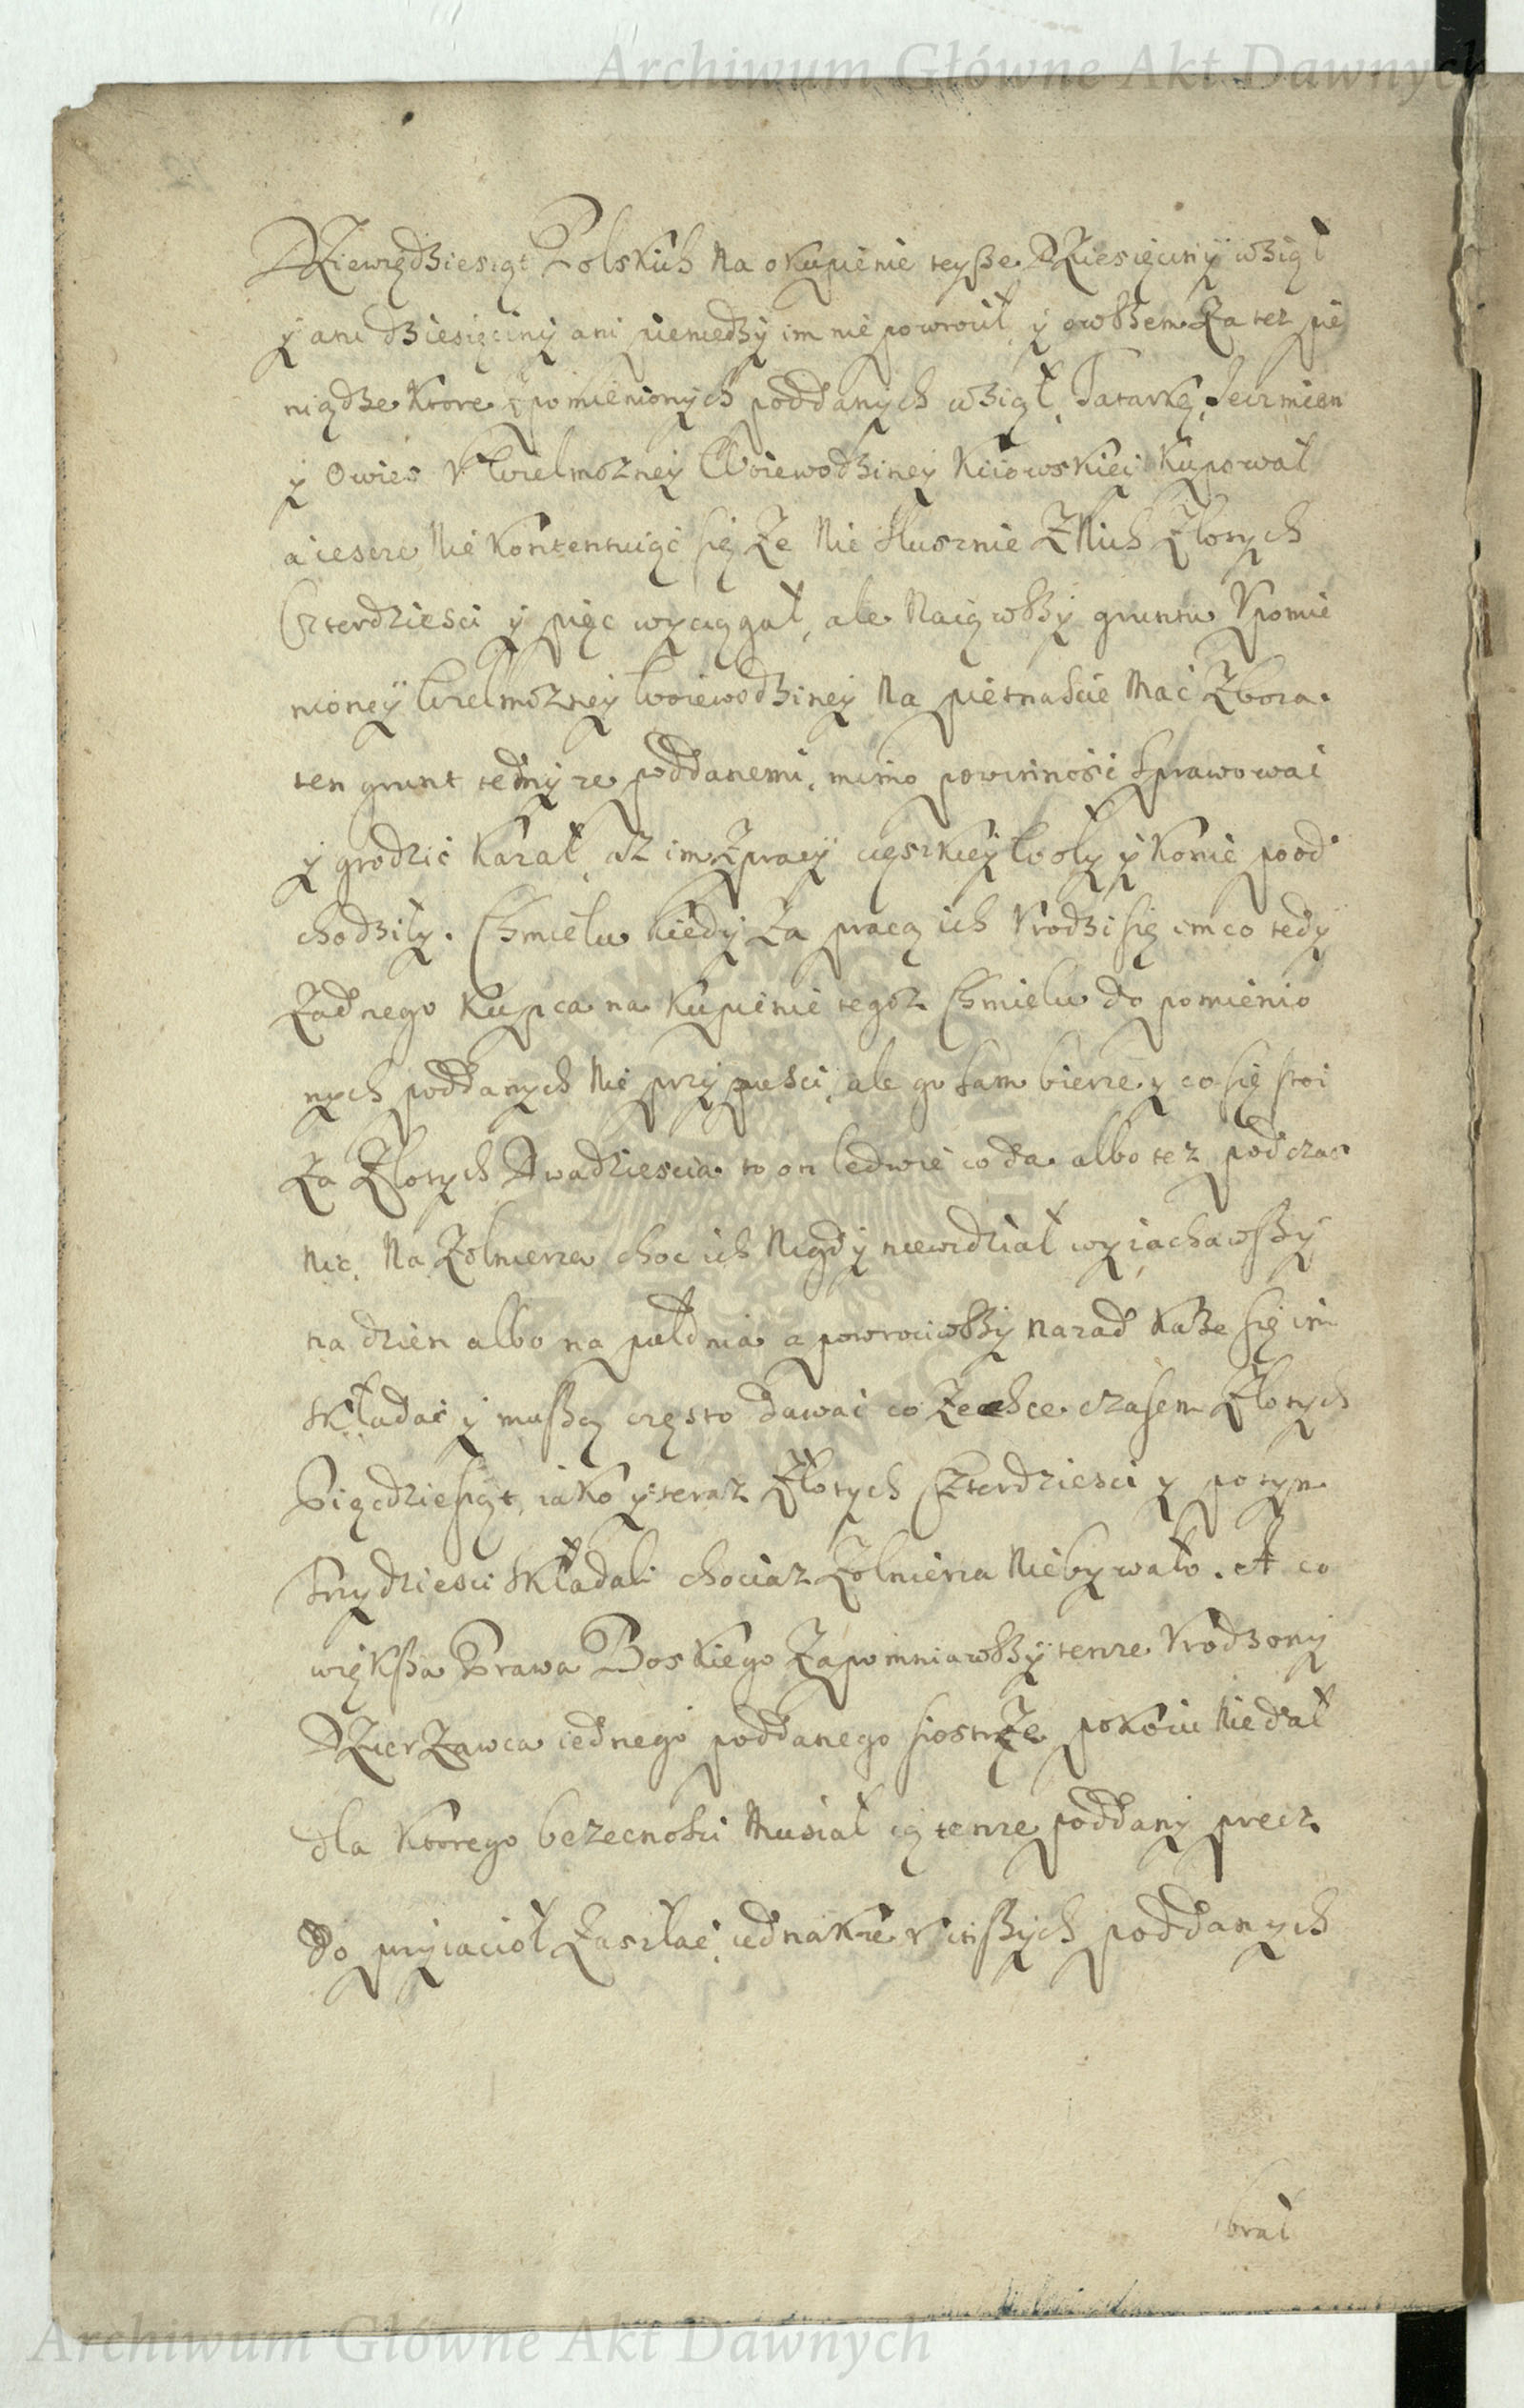 Archiwum Główne Akt Dawnych
Dziewiędziesiąt Polskich Na okupienie teyße Dziesięciny wział
y ani dziesięciny ani pieniedzy im nie powrocił, y owßem Za też pie
niądze ktore z pomienionych poddanych wział, Tatarkę, Jeczmien
y Owies V Wielmozney Woiewodziney Kiiowskiei kupował
a iescze Nie kontentuiąc się Ze Nie słusznie Z Nich Złotych
Czterdziesci y pięc wyciągał, ale Naiąwßy gruntu V pomie
nioney Wielmozney Woiewodziney Na pietnascie Mac Zboza
ten grunt temyze poddanemi, mimo powinnosc Sprawowac
y grodzic kazał, asz im Z pracy cięszkiey Woły y konie pood
chodziły. Chmielu kiedy Za pracą ich Vrodzi się im co tedy
Zadnego kupca na kupienie tegoz Chmielu do pomienio
nych poddanych Nie przypusci, ale go sam bierze y co się stoi
Za Złotych Dwadziescia to on ledwie co da albo tez podczas
Nic. Na Zolnierze choc ich Nigdy niewidział wyiachawßy
na dzien albo na puł dnia a powrociwßy nazad kaze się im
składac y mußą często dawac co Zechce czasem Złotych
Pięcdziesiąt, iako y teraz Złotych Czterdziesci y potym
Trzydziesci składali chociaz Zolnierza Niebywało. A co
więkßa Prawa Boskiego Zapomniawßy tenze Vrodzony
DzierZawca iednego poddanego siostrZe pokoiu Niedał
dla ktorego bezecnosci Musiał ią tenze poddany precz
do przyiacioł Zaszłac, iednakze V inßych poddanych
brał
Archiwum Główne Akt Dawnych